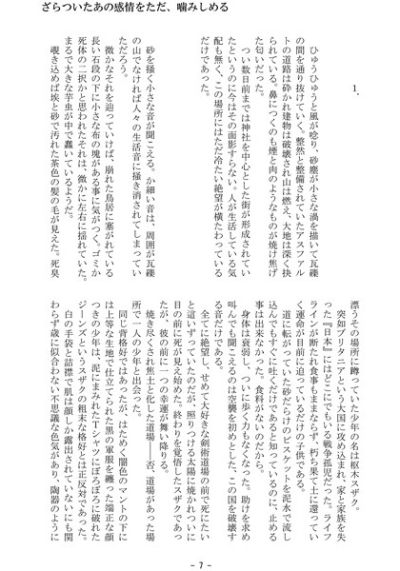 ざらついたあの感情をただ、噛みしめる
1.
ひゅうひゅうと風が唸り、砂塵が小さな渦を描いて瓦礫
の間を通り抜けていく。整然と整備されていたアスファル
トの道路は砕かれ建物は破壊され山は燃え、大地は深く抉
られている。鼻につくのも煙と肉のようなものが焼け焦げ
た匂いだった。
つい数日前までは神社を中心とした街が形成されてい
たというのに今はその面影すらない。人が生活している気
配も無く、この場所にはただ冷たい絶望が横たわっている
だけであった。
砂を掻く小さな音が聞こえる。か細い音は、周囲が瓦礫
の山でなければ人々の生活音に掻き消されてしまってい
ただろう。
微かなそれを辿っていけば、崩れた鳥居に塞がれている
長い石段の下に小さな布の塊がある事に気がつく。ゴミか
死体の二択かと思われたそれは、微かに左右に揺れていた。
まるで大きな芋虫が中で蠢いているようだ。
覗き込めば埃と砂で汚れた茶色の髪の毛が見えた。死臭
漂うその場所に蹲っていた少年の名は枢木スザク。
突如ブリタニアという大国に攻め込まれ、家と家族を失
った『日本』にはどこにでもいる戦争孤児だった。ライフ
ラインが断たれ食事もままならず、朽ち果て土に還ってい
く運命が目前に迫っているだけの子供である。
道に転がっていた砂だらけのビスケットを泥水で流し
込んでもすぐに吐くだけであると知っているのに、止める
事は出来なかった。食料がないのだから。
身体は衰弱し、ついに歩く力もなくなった。助けを求め
叫んでも聞こえるのは空襲を初めとした、この国を破壊す
る音だけである。
全てに絶望し、せめて大好きな剣術道場の前で死にたい
と這いずっていたのだが、照りつける太陽に焼かれついに
目の前に死が見え始めた。終わりを覚悟したスザクであっ
たが、彼の前に一つの幸運が舞い降りる。
焼き尽くされ焦土と化した道場――否、道場があった場
所で一人の少年と出会った。
同じ背格好ではあったが、はためく闇色のマントの下に
は上等な生地で仕立てられた黒の軍服を纏った端正な顔
つきの少年は、泥にまみれたTシャツにぼろぼろに破れた
ジーンズというスザクの粗末な格好とは正反対であった。
白の手袋と詰襟で肌は顔しか露出されていないにも関
わらず歳に似合わない不思議な色気があり、陶器のように
- 7 -